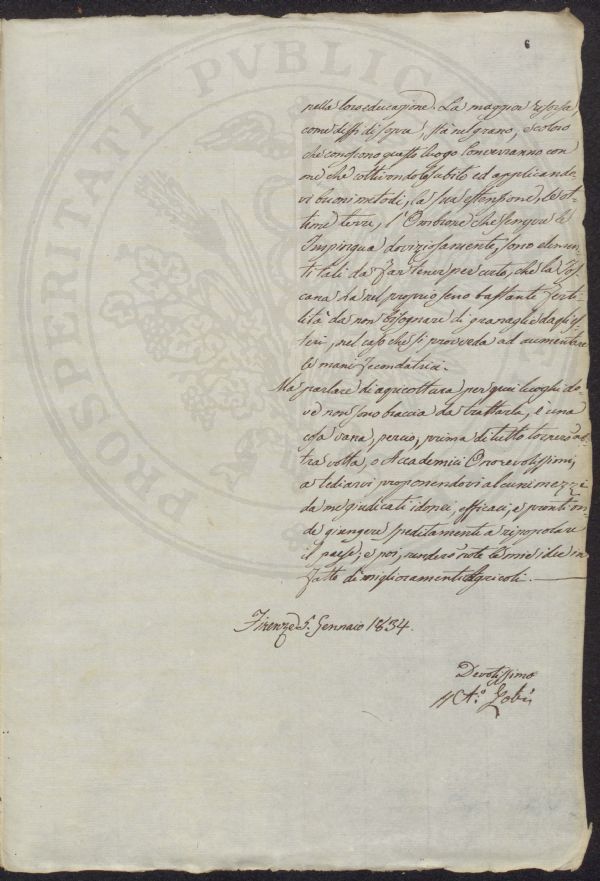 6
nella loro educazione. La maggior risorsa,
come dissi di sopra, stà nel grano, e coloro
che conoscono questo luogo converranno con
me che coltivandolo subito ed applicando-
vi buoni metodi, la sua estensione, le ot-
time terre, l'Ombrone che sempre le
Impingua doviziosamente, sono elemen-
ti tali da far tener per certo, che la Tos-
cana ha nel proprio seno bastante ferti-
lità da non bisognare di granaglie dagli es-
teri, nel caso che si proveda ad aumentare
le mani fecondatrici.
Ma parlare di agricoltura per quei luoghi do-
ve non sono braccia da trattarla, è una
cosa vana, perciò, prima di tutto tornerò al-
tra volta, o Accademici Onorevolissimi,
a tediarvi proponendovi alcuni mezzi
da me giudicati idonei, efficaci, e pronti on-
de giungere speditamente a ripopolare
il paese; e poi, renderò note le mie idee in
fatto di miglioramenti Agricoli.
Firenze 5. Gennaio 1834.
Devotissimo
A.º
PROSPERITATI PVBLIC